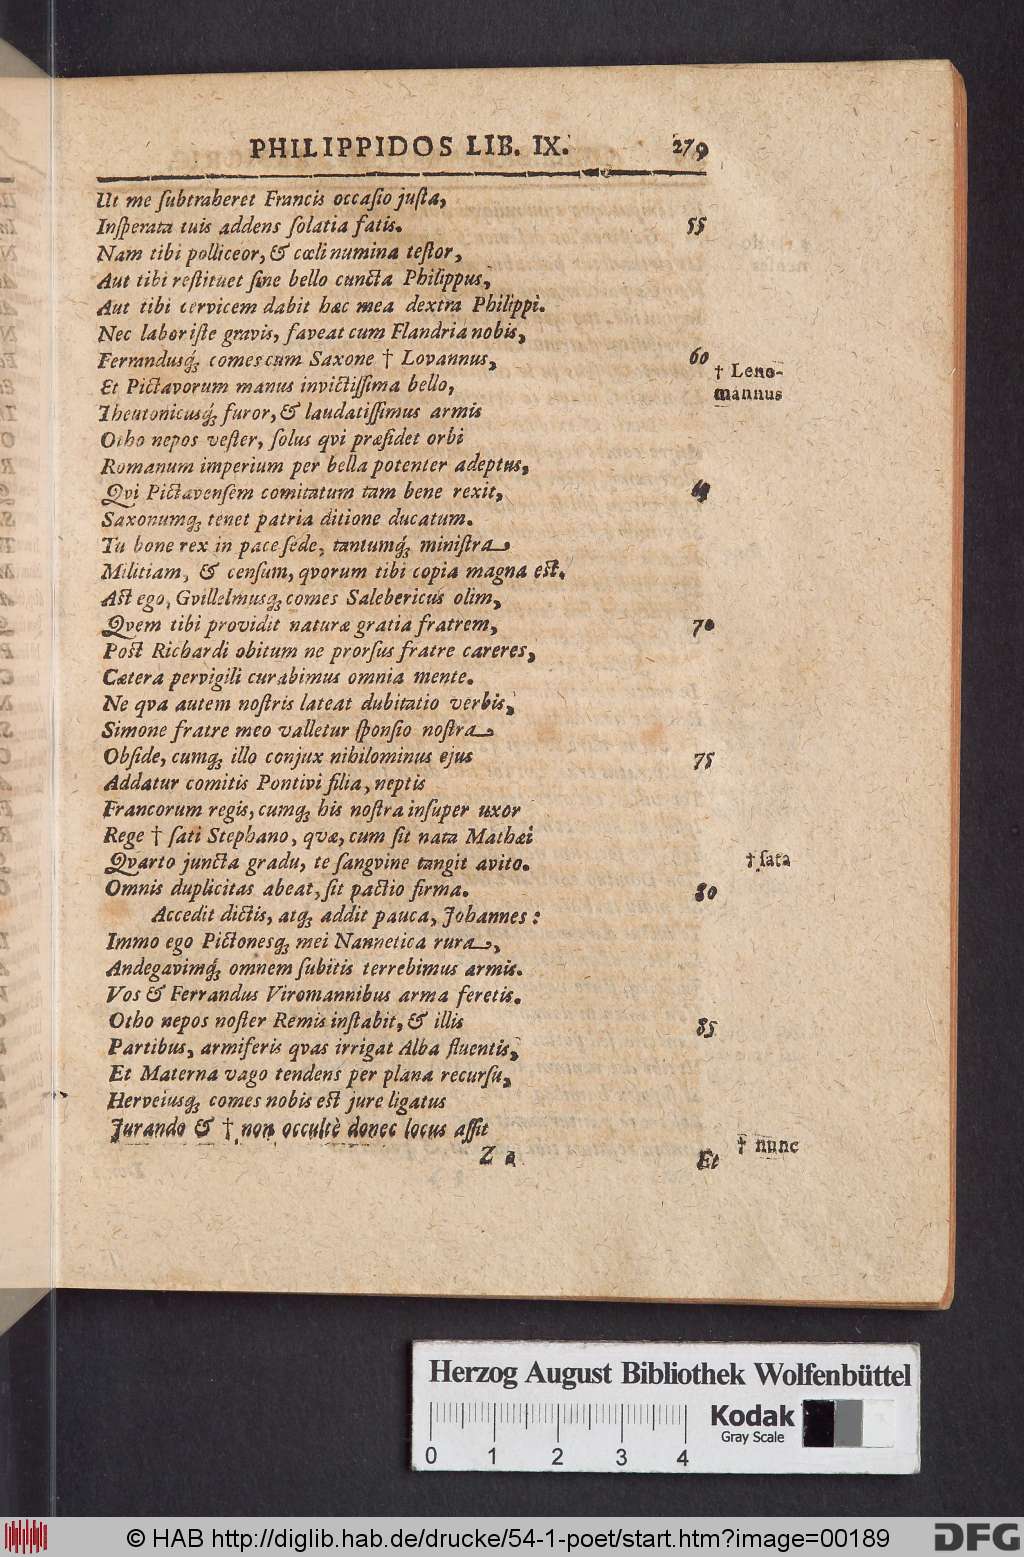 PHILIPPIDOS LIB. IX. 279
Ut me ſubtraheret Francis occaſio juſta,
Inſperata tuis addens ſolatia fatis. 55
Nam tibi polliceor, & cœli numina teſtor,
Aut tibi reſtituet ſine bello cuncta Philippus,
Aut tibi cervicem dabit hac mea dextra Philippi.
Nec labor iſte gravis, faveat cum Flandria nobis,
Ferrandusq; comes cum Saxone † Lovannus, 60
† Leno-
mannus
Et Pictavorum manus invictiſſima bello,
Theutonicusq; furor, & laudatiſſimus armis
Otho nepos veſter, ſolus qvi præſidet orbi
Romanum imperium per bella potenter adeptus,
Qvi Pictavenſem comitatum tam bene rexit, 65
Saxonumq; tenet patria ditione ducatum.
Tu bone rex in pace ſede, tantumq; miniſtra
Militiam, & cenſum, qvorum tibi copia magna eſt.
Aſt ego, Gvillelmusq; comes Salebericus olim,
Qvem tibi providit naturæ gratia fratrem, 70
Poſt Richardi obitum ne prorſus fratre careres,
Cætera pervigili curabimus omnia mente.
Ne qva autem noſtris lateat dubitatio verbis,
Simone fratre meo valletur ſponſio noſtra
Obſide, cumq; illo conjux nihilominus ejus 75
Addatur comitis Pontivi filia, neptis
Francorum regis, cumq; his noſtra inſuper uxor
Rege † ſati Stephano, qvæ, cum ſit nata Mathæi
Qvarto juncta gradu, te ſangvine tangit avito.
† ſata
Omnis duplicitas abeat, ſit pactio firma. 80
Accedit dictis, atq; addit pauca, Johannes:
Immo ego Pictonesq; mei Nannetica rura,
Andegavimq; omnem ſubitis terrebimus armis.
Vos & Ferrandus Viromannibus arma feretis.
Otho nepos noſter Remis inſtabit, & illis 85
Partibus, armiferis qvas irrigat Alba fluentis,
Et Materna vago tendens per plana recurſu,
Herveiusq; comes nobis eſt jure ligatus
Jurando & † non occultè donec locus aſſit
† nunc
Z 2 Et
Herzog August Bibliothek Wolfenbüttel
0 1 2 3 4
Kodak
Gray Scale
© HAB http://diglib.hab.de/drucke/54-1-poet/start.htm?image=00189
DFG